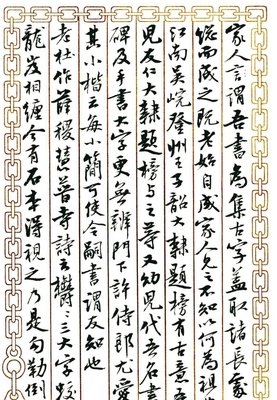 家人言謂吾書為集古字盖取諸長處
總而成之既老始自成家人見之不知以何為祖
江南吳皖登州王子韶大隸題榜有古意吾
兒友仁大隸題榜與之等又幼兒代吾名書
碑及手書大字更無辨門下許侍郎尤愛
其小楷云每小簡可使令嗣書謂友知也
老杜作薛稷慧普寺詩云欝〻三大字蛟
龍岌相纏今有石本得視之乃是勾勒倒